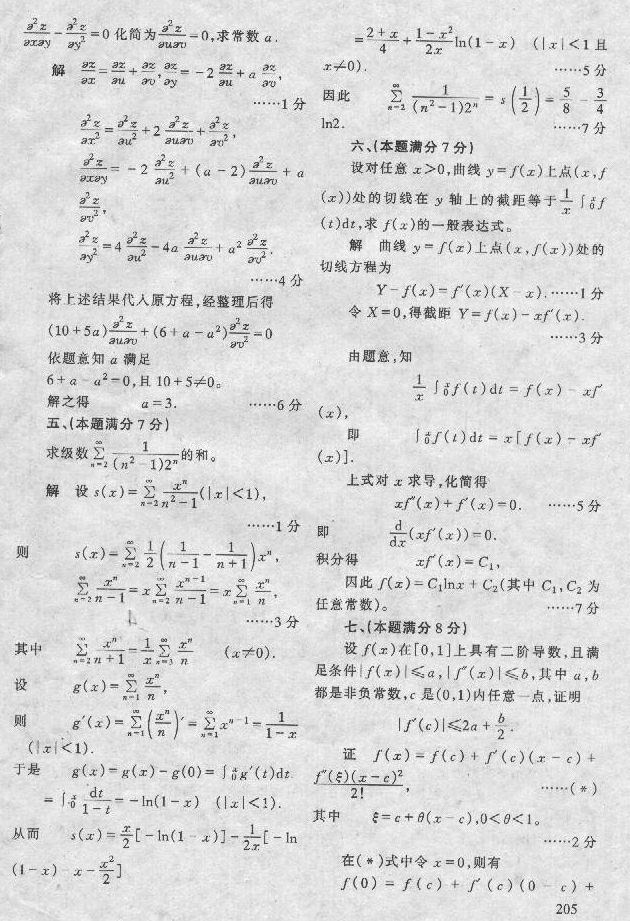 ∂²z/∂x∂y − ∂²z/∂y² = 0 化简为 ∂²z/∂u∂v = 0,求常数 a.
解 ∂z/∂x = ∂z/∂u + ∂z/∂v, ∂z/∂y = −2 ∂z/∂u + a ∂z/∂v,
……1 分
∂²z/∂x² = ∂²z/∂u² + 2 ∂²z/∂u∂v + ∂²z/∂v²,
∂²z/∂x∂y = −2 ∂²z/∂u² + (a − 2) ∂²z/∂u∂v + a
∂²z/∂v²,
∂²z/∂y² = 4 ∂²z/∂u² − 4a ∂²z/∂u∂v + a² ∂²z/∂v².
……4 分
将上述结果代入原方程,经整理后得
(10 + 5a) ∂²z/∂u∂v + (6 + a − a²) ∂²z/∂v² = 0
依题意知 a 满足
6 + a − a² = 0,且 10 + 5≠0。
解之得 a = 3. ……6 分
五、(本题满分 7 分)
求级数 ∑_{n=2}^{∞} 1/((n² − 1)2ⁿ) 的和。
解 设 s(x) = ∑_{n=2}^{∞} xⁿ/(n² − 1) (|x|<1),
……1 分
则 s(x) = ∑_{n=2}^{∞} 1/2 (1/(n − 1) − 1/(n + 1)) xⁿ,
∑_{n=2}^{∞} xⁿ/(n − 1) = x ∑_{n=2}^{∞} xⁿ⁻¹/(n − 1) = x ∑_{n=1}^{∞} xⁿ/n,
……3 分
其中 ∑_{n=2}^{∞} xⁿ/(n + 1) = 1/x ∑_{n=3}^{∞} xⁿ/n (x≠0).
设 g(x) = ∑_{n=1}^{∞} xⁿ/n,
则 g′(x) = ∑_{n=1}^{∞} (xⁿ/n)′ = ∑_{n=1}^{∞} xⁿ⁻¹ = 1/(1 − x)
(|x|<1).
于是 g(x) = g(x) − g(0) = ∫₀ˣ g′(t)dt
= ∫₀ˣ dt/(1 − t) = −ln(1 − x) (|x|<1).
从而 s(x) = x/2 [−ln(1 − x)] − 1/2x [−ln
(1 − x) − x − x²/2]
= (2 + x)/4 + (1 − x²)/2x ln(1 − x) (|x|<1 且
x≠0). ……5 分
因此 ∑_{n=2}^{∞} 1/((n² − 1)2ⁿ) = s(1/2) = 5/8 − 3/4
ln2. ……7 分
六、(本题满分 7 分)
设对任意 x>0,曲线 y = f(x)上点(x, f
(x))处的切线在 y 轴上的截距等于 1/x ∫₀ˣ f
(t)dt,求 f(x)的一般表达式。
解 曲线 y = f(x)上点(x, f(x))处的
切线方程为
Y − f(x) = f′(x)(X − x). ……1 分
令 X = 0,得截距 Y = f(x) − xf′(x).
……3 分
由题意,知
1/x ∫₀ˣ f(t)dt = f(x) − xf′
(x),
即 ∫₀ˣ f(t)dt = x[f(x) − xf′
(x)].
上式对 x 求导,化简得
xf″(x) + f′(x) = 0. ……5 分
即 d/dx (xf′(x)) = 0.
积分得 xf′(x) = C₁,
因此 f(x) = C₁lnx + C₂(其中 C₁, C₂ 为
任意常数)。 ……7 分
七、(本题满分 8 分)
设 f(x)在[0,1]上具有二阶导数,且满
足条件|f(x)|≤a, |f″(x)|≤b,其中 a, b
都是非负常数,c 是(0,1)内任意一点,证明
|f′(c)|≤2a + b/2.
证 f(x) = f(c) + f′(c)(x − c) +
f″(ξ)(x − c)²/2!, ……(*)
其中 ξ = c + θ(x − c), 0<θ<1。
……2 分
在(*)式中令 x = 0,则有
f(0) = f(c) + f′(c)(0 − c) +
205